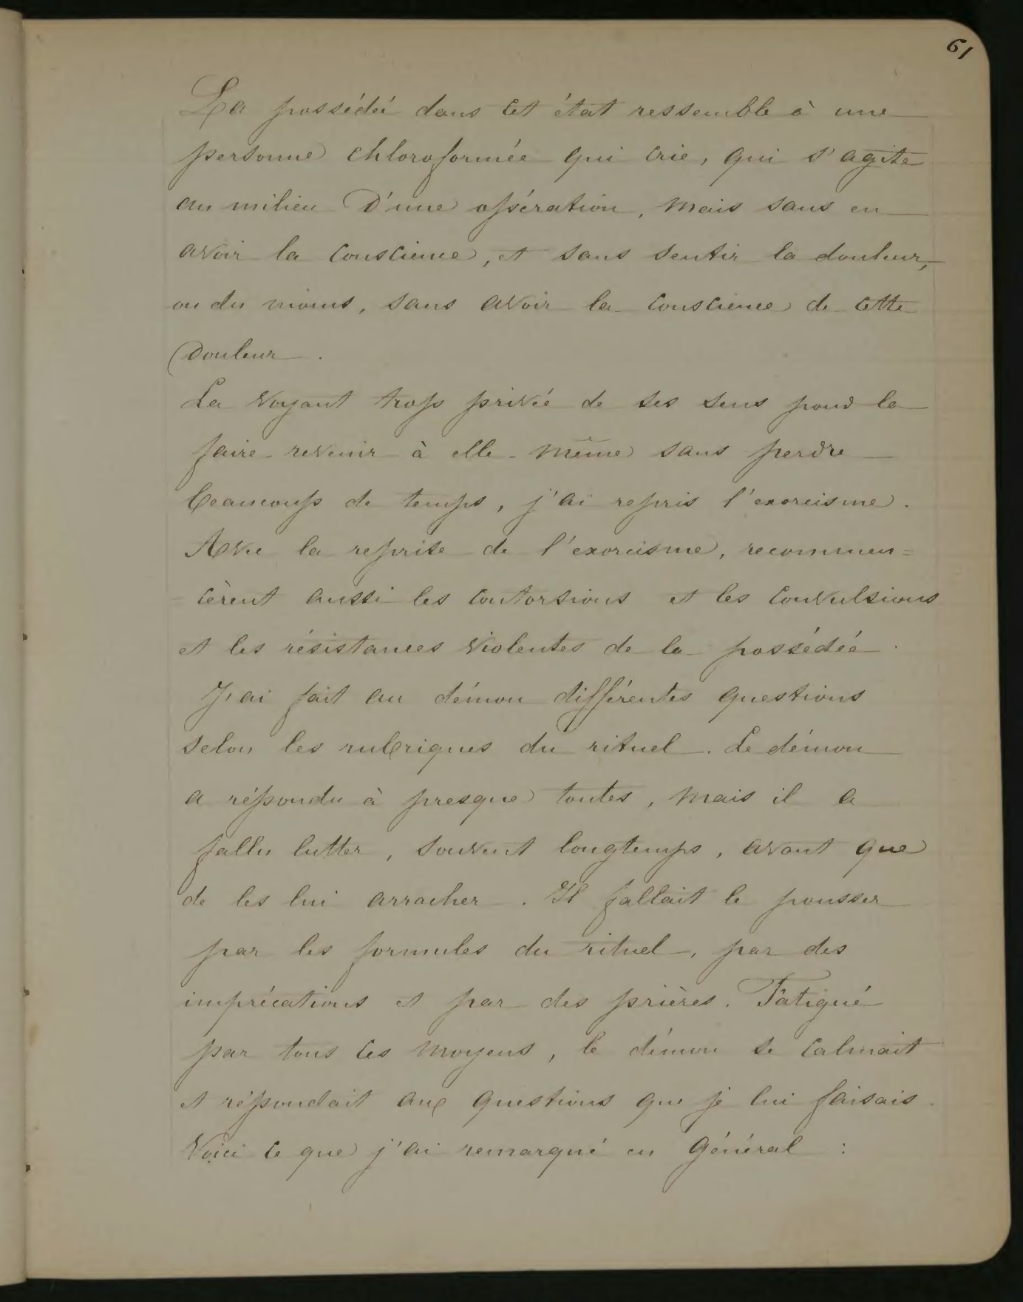 61
La possédée dans cet état ressemble à une
personne chloroformée qui crie, qui s'agite
au milieu d'une opération, mais sans en
avoir la conscience, et sans sentir la douleur,
ou du moins, sans avoir la conscience de cette
douleur.
La voyant trop privée de ses sens pour la
faire revenir à elle-même sans perdre
beaucoup de temps, j'ai repris l'exorcisme.
Avec la reprise de l'exorcisme, recommen=
cèrent aussi les contorsions et les convulsions
et les résistances violentes de la possédée.
J'ai fait au démon différentes questions
selon les rubriques du rituel. Le démon
a répondu à presque toutes, mais il a
fallu lutter, souvent longtemps, avant que
de les lui arracher. Il fallait le pousser
par les formules du rituel, par des
imprécations et par des prières. Fatigué
par tous ces moyens, le démon se calmait
et répondait aux questions que je lui faisais.
Voici ce que j'ai remarqué en général :